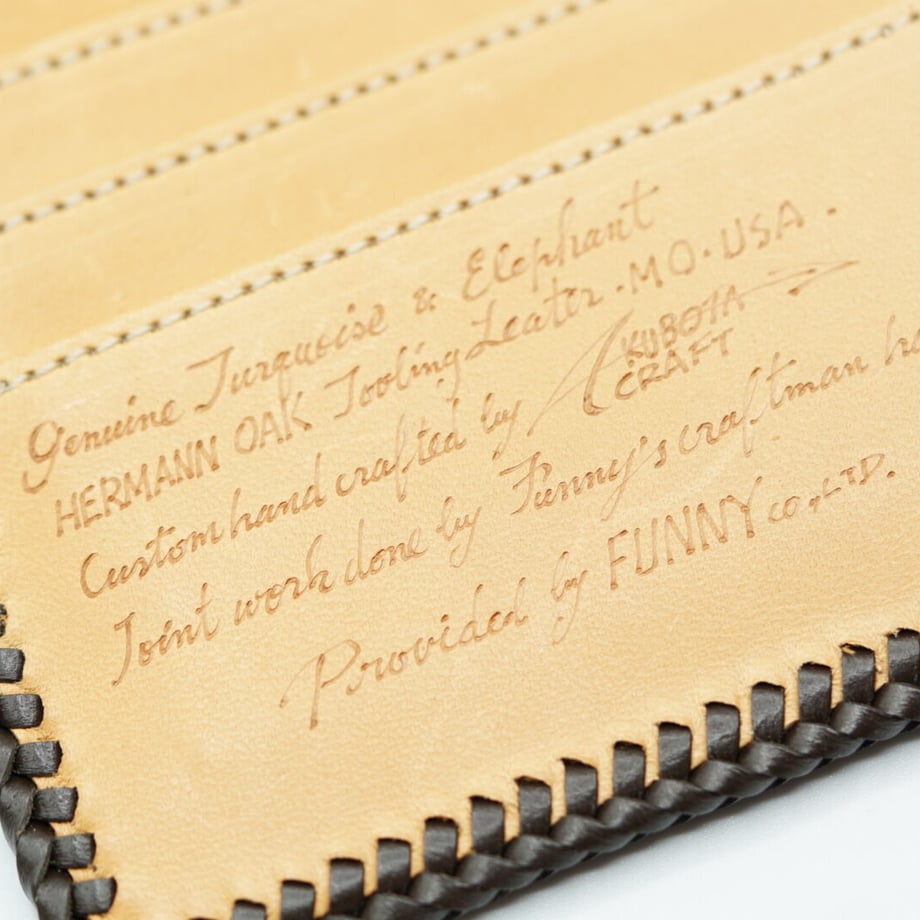 Genuine Turquoise & Elephant
HERMANN OAK Tooling Leater.MO.USA.
Custom hand crafted by KUBOTA CRAFT
Joint work done by Funny's craftman
Provided by FUNNY CO.,LTD.